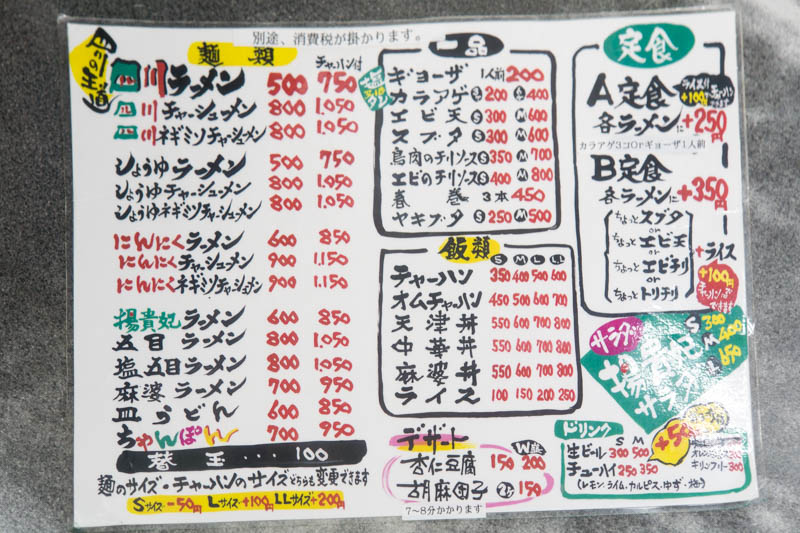 別途、消費税が掛かります。
四川の王道
麺類
チャーハン付
四川ラーメン 500 750
四川チャーシューメン 800 1,050
四川ネギミソチャーシューメン 800 1,050
しょうゆラーメン 500 750
しょうゆチャーシューメン 800 1,050
しょうゆネギミソチャーシューメン 800 1,050
にんにくラーメン 600 850
にんにくチャーシューメン 900 1,150
にんにくネギミソチャーシューメン 900 1,150
揚貴妃ラーメン 600 850
五目ラーメン 800 1,050
塩五目ラーメン 800 1,050
麻婆ラーメン 700 950
皿うどん 600 850
ちゃんぽん 700 950
替玉・・・100
麺のサイズ・チャーハンのサイズどちらも変更できます
Sサイズ-50円 Lサイズ+100円 LLサイズ+200円
一品
ギョーザ 1人前 200
カラアゲ S 200 M 400
エビ天 S 300 M 600
スブタ S 300 M 600
鳥肉のチリソース S 350 M 700
エビのチリソース S 400 M 800
春巻 3本 450
ヤキブタ S 250 M 500
飯類
S M L LL
チャーハン 350 400 500 600
オムチャーハン 450 500 600 700
天津丼 550 600 700 800
中華丼 550 600 700 800
麻婆丼 550 600 700 800
ライス 100 150 200 250
デザート
W盛
杏仁豆腐 150 200
胡麻団子 2コ 150
7~8分かかります
定食
A定食
各ラーメンに+250円
カラアゲ3コOrギョーザ1人前
B定食
各ラーメンに+350円
ちょっとスブタ
or
ちょっとエビ天
or
ちょっとエビチリ
or
ちょっとトリチリ
+ライス
+100円
チャーハンにできます
サラダ
S 300
M 400
L
ドリンク
S M
生ビール 300 500
チューハイ 250 350
(レモン・ライム・カルピス・ゆず・梅)
+50
キリンフリー 300